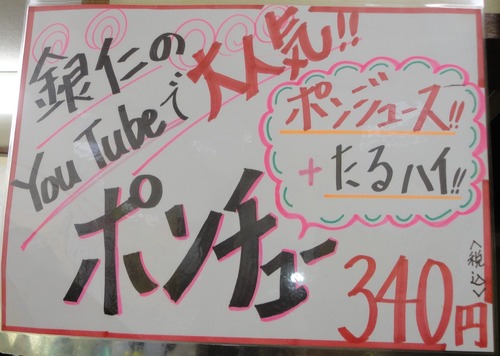 銀仁の
YouTubeで大人気!!
ポンジュース!!
+たるハイ!!
ポンチュー
340円<税込>